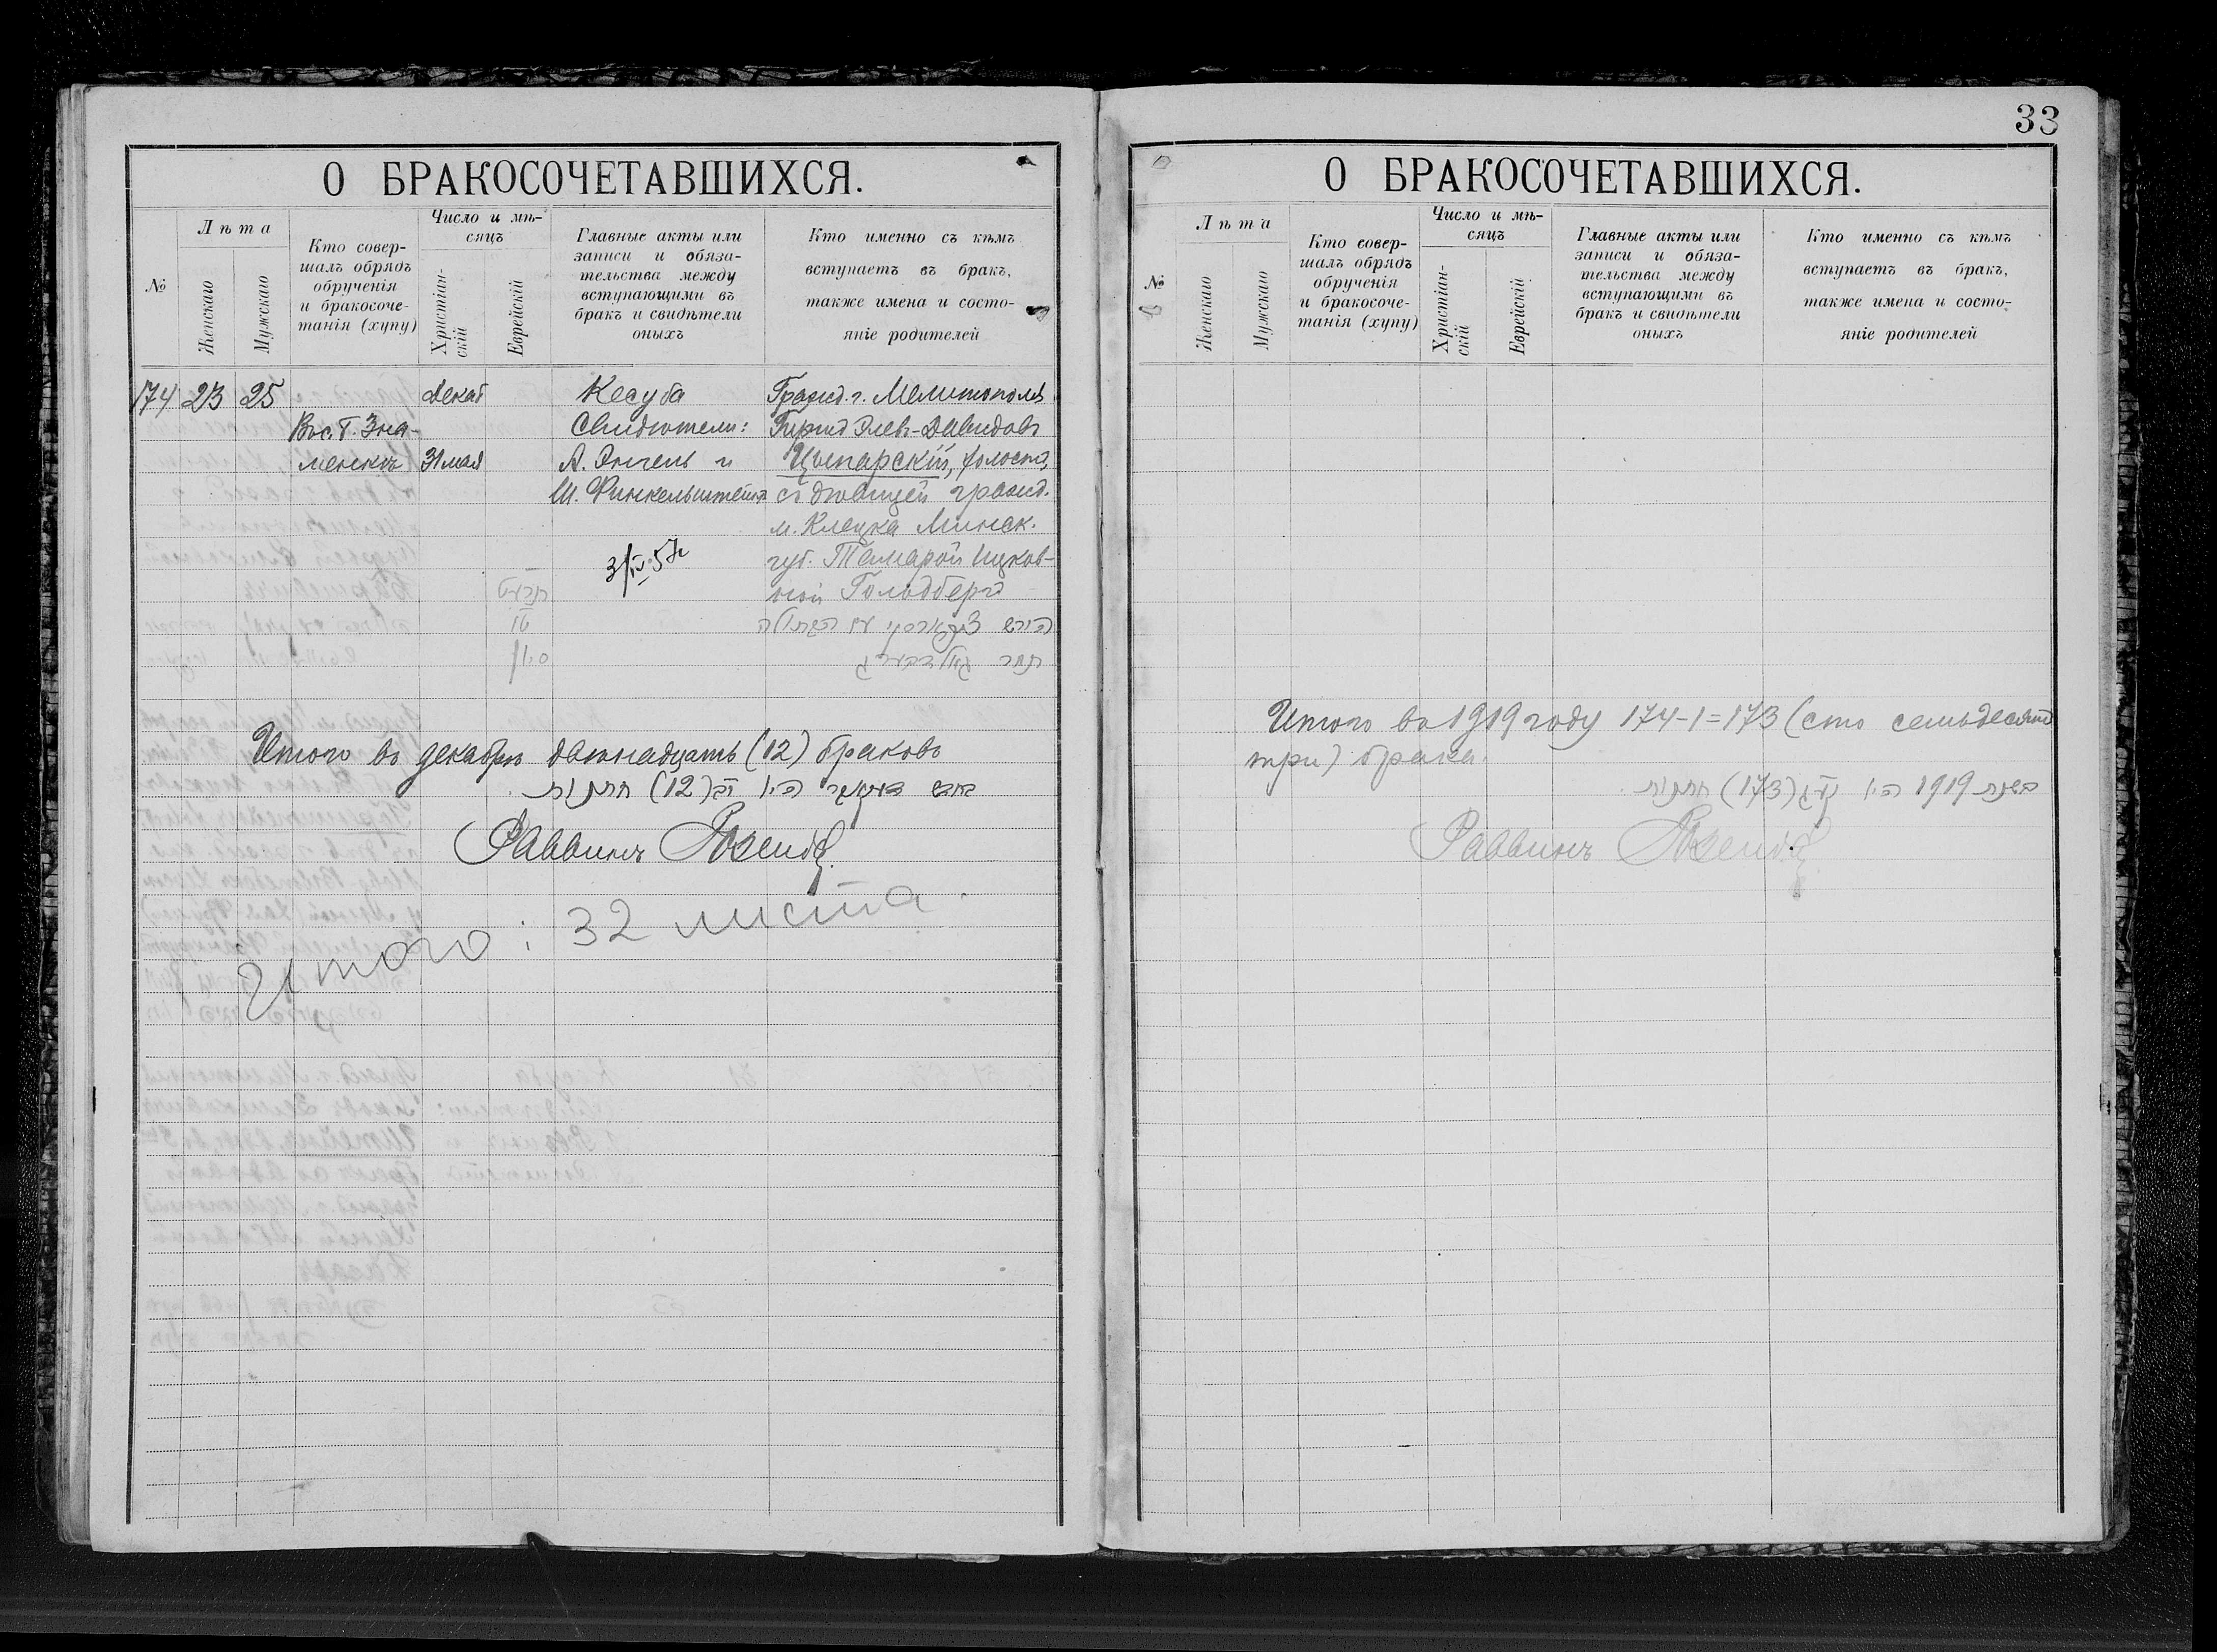 О БРАКОСОЧЕТАВШИХСЯ.
№
Лѣта
Женскаго
Мужскаго
Кто совер-
шалъ обрядъ
обрученія
и бракосоче-
танія (хупу)
Число и мѣ-
сяцъ
Христіан-
скій
Еврейскій
Главные акты или
записи и обяза-
тельства между
вступающими въ
бракъ и свидѣтели
оныхъ
Кто именно съ кѣмъ
вступаетъ въ бракъ,
также имена и состо-
яніе родителей
174 23 25
Вос. Т. Зна-
менскъ
Декаб
31 мая
Кесуба
Свидѣтели:
А. Энгель и
Ш. Финкельштейнъ
3/IV 57г
Гражд. г. Мелитополя
Гиршъ Элевъ-Давидовъ
Цыпарскій, холостъ,
съ дѣвицей гражд.
м. Клецка Минск.
губ. Тамарой Ицков-
ной Гольдбергъ
תמר גאלדבערג
Итого въ декабрѣ двѣнадцать (12) браковъ
(12) חתונות
Раввинъ
Итого: 32 листа
33
О БРАКОСОЧЕТАВШИХСЯ.
№
Лѣта
Женскаго
Мужскаго
Кто совер-
шалъ обрядъ
обрученія
и бракосоче-
танія (хупу)
Число и мѣ-
сяцъ
Христіан-
скій
Еврейскій
Главные акты или
записи и обяза-
тельства между
вступающими въ
бракъ и свидѣтели
оныхъ
Кто именно съ кѣмъ
вступаетъ въ бракъ,
также имена и состо-
яніе родителей
Итого въ 1919 году 174-1=173 (сто семьдесятъ
три) брака.
בשנת 1919 היו קעג (173) חתונות.
Раввинъ